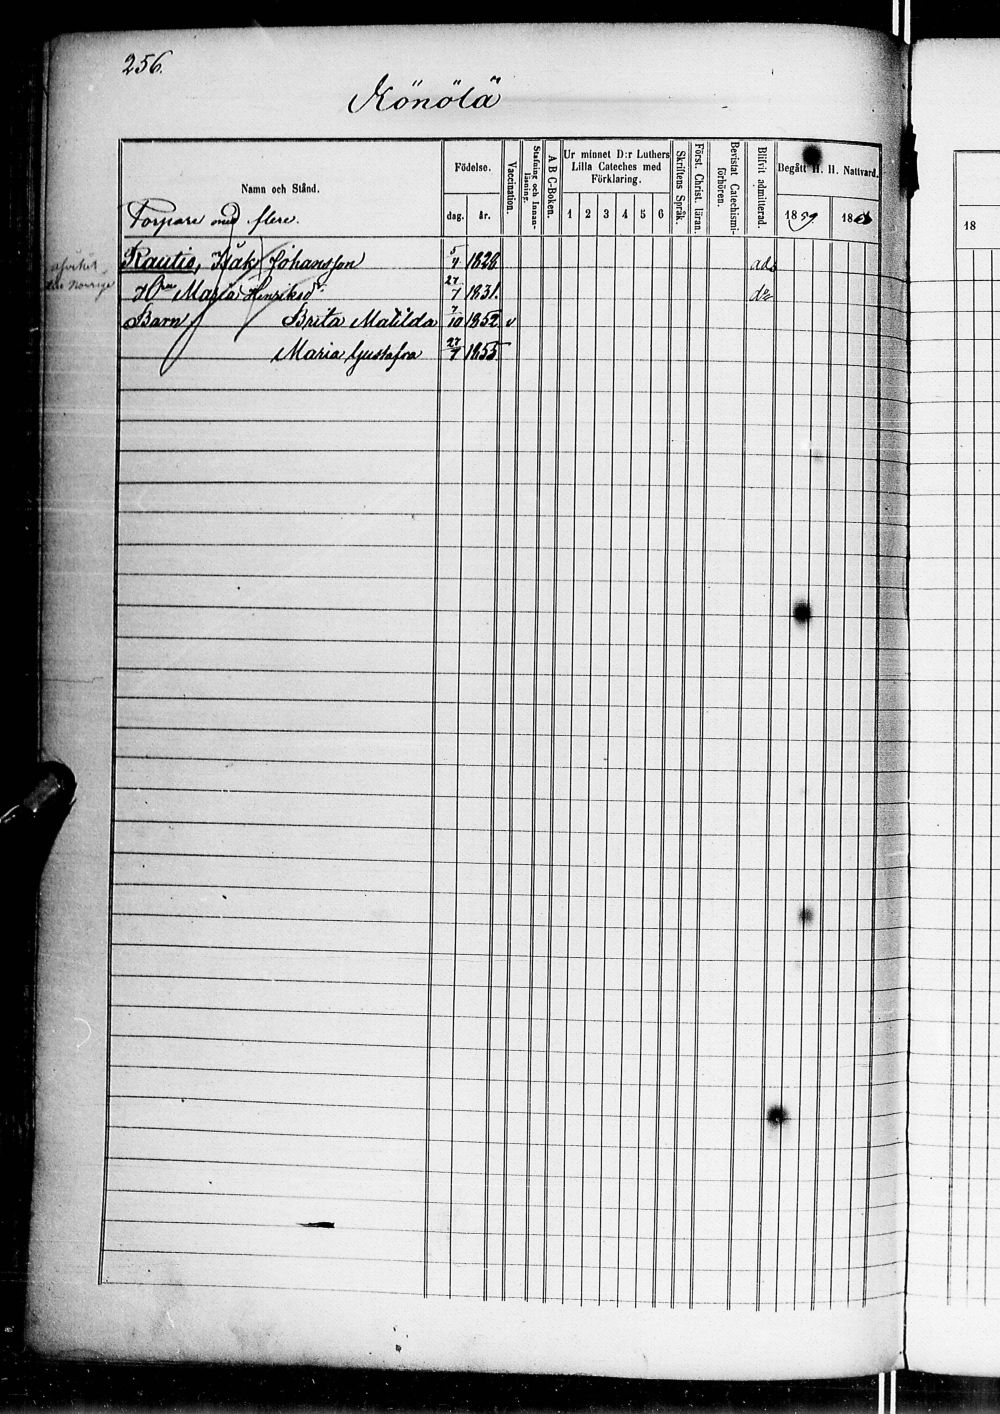 256.
Könölä
Namn och Stånd.
Födelse.
dag.
år.
Vaccination.
Stafning och Innanläsning.
A B C-Boken.
Ur minnet D:r Luthers Lilla Cateches med Förklaring.
1 2 3 4 5 6
Skriftens Språk.
Först. Christ. läran.
Bevistat Catechismi-förhören.
Blifvit admitterad.
Begått H. H. Nattvard.
1859
18
18
Torpare med flere.
Rautio, Isak Johansson 5/4 1828 ads
Maria Henriksdr 27/7 1831. do
Barn Brita Matilda 7/10 1852 v
Maria Gustafva 27/7 1855
Norrige